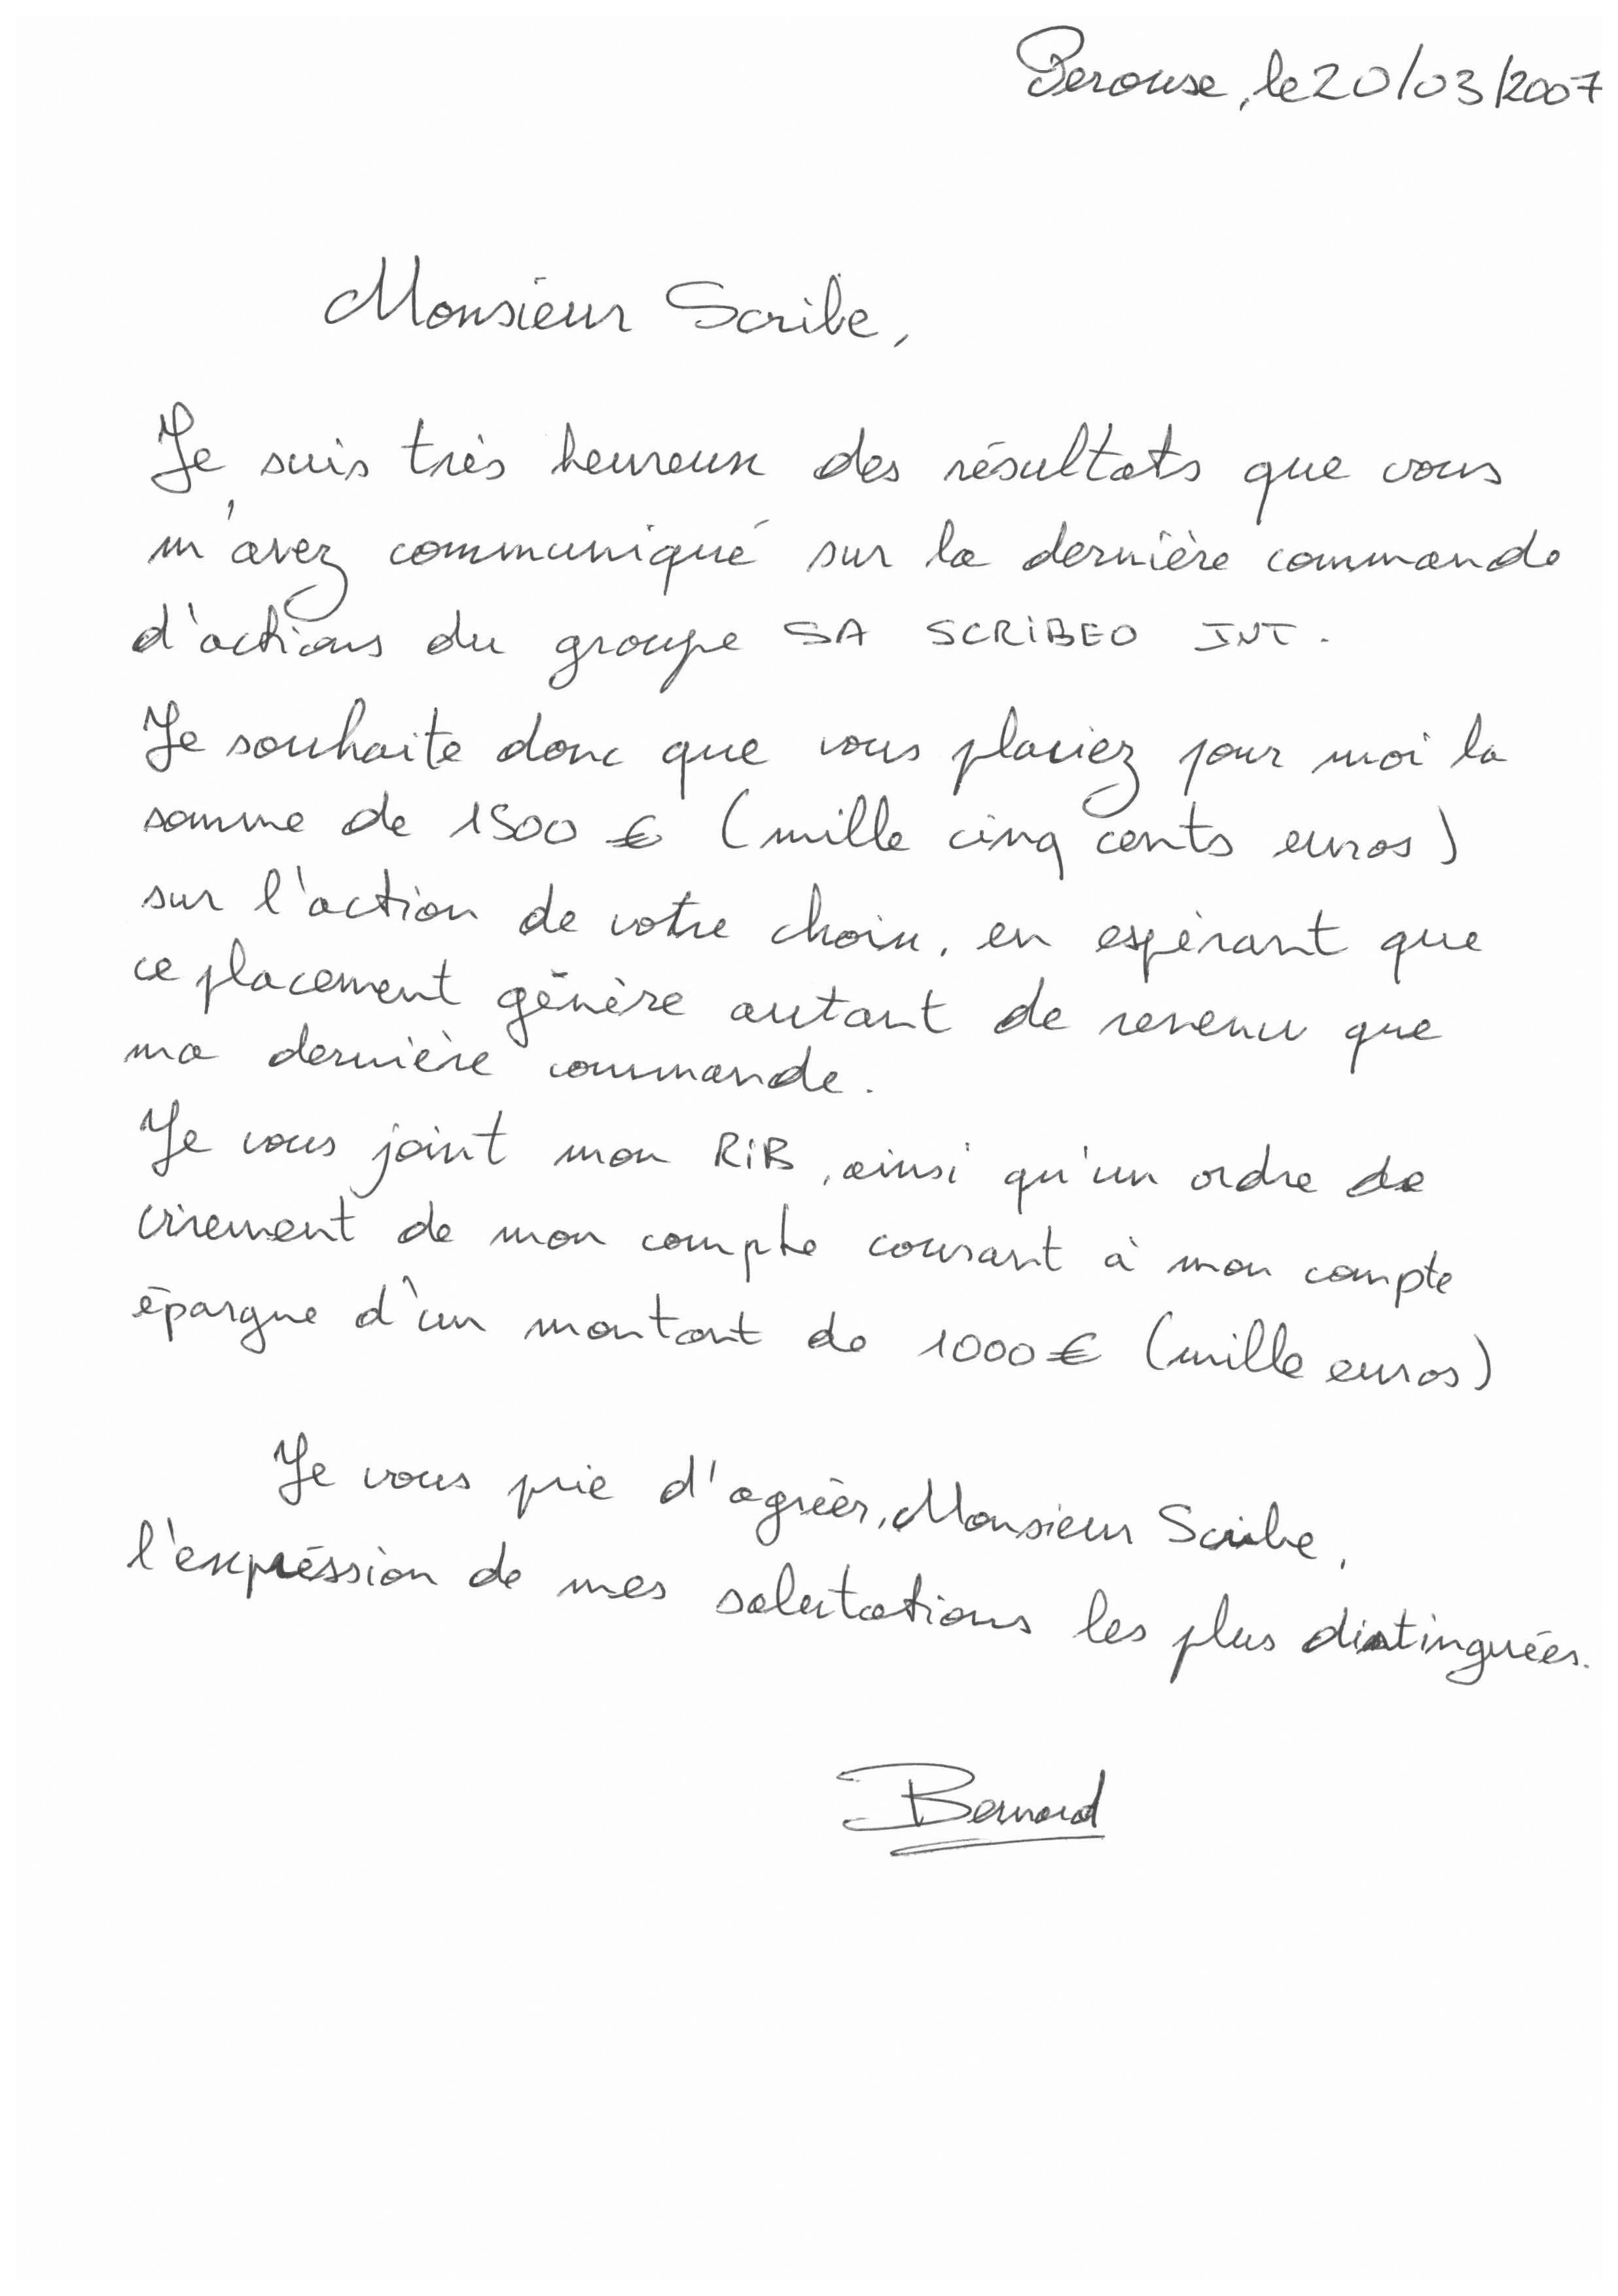 Perouse, le 20/03/2007
Monsieur Scribe,
Je suis très heureux des résultats que vous
m'avez communiqué sur la dernière commande
d'actions du groupe SA SCRIBEO INT.
Je souhaite donc que vous placiez pour moi la
somme de 1500 € (mille cinq cents euros)
sur l'action de votre choix, en espérant que
ce placement génère autant de revenu que
ma dernière commande.
Je vous joint mon RIB, ainsi qu'un ordre de
virement de mon compte courant à mon compte
épargne d'un montant de 1000 € (mille euros)
Je vous prie d'agréér, Monsieur Scribe,
l'expréssion de mes salutations les plus distinguées.
Bernard